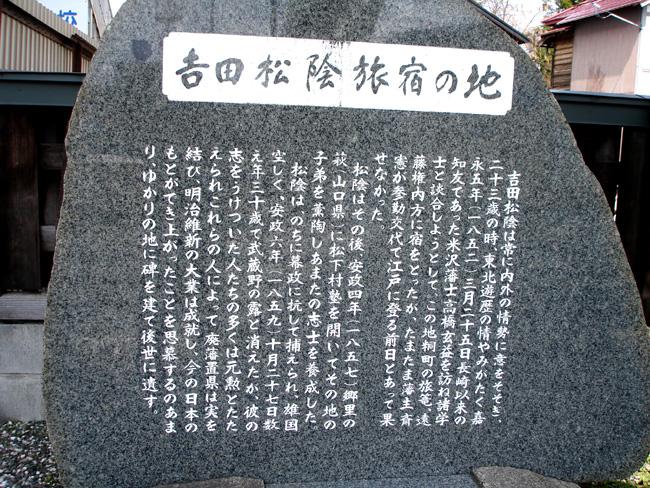 𠮷田松陰旅宿の地
吉田松陰は常に内外の情勢に意をそそぎ、
二十三歳の時、東北遊歴の情やみがたく嘉
永五年(一八五二)三月二十五日長崎以来の
知友であった米沢藩士高橋玄益を訪ね諸学
士と談合しようとして、この地粡町の旅篭、遠
藤権内方に宿をとったが、たまたま藩主・斉
憲が参勤交代で江戸に登る前日とあって果
せなかった。
松陰はその後、安政四年(一八五七)郷里の
萩(山口県)に松下村塾を開いてその地の
子弟を薫陶しあまたの志士を養成した
松陰は、のちに幕政に抗して捕えられ、雄図
空しく、安政六年(一八五九)十月二十七日数
え年三十歳で武蔵野の露と消えたが、彼の
志をうけついた人たちの多くは元勲とたた
えられこれらの人によって廃藩置県は実を
結び、明治維新の大業は成就し、今の日本の
もとができ上がったことを思慕するのあま
り、ゆかりの地に碑を建て後世に遺す。